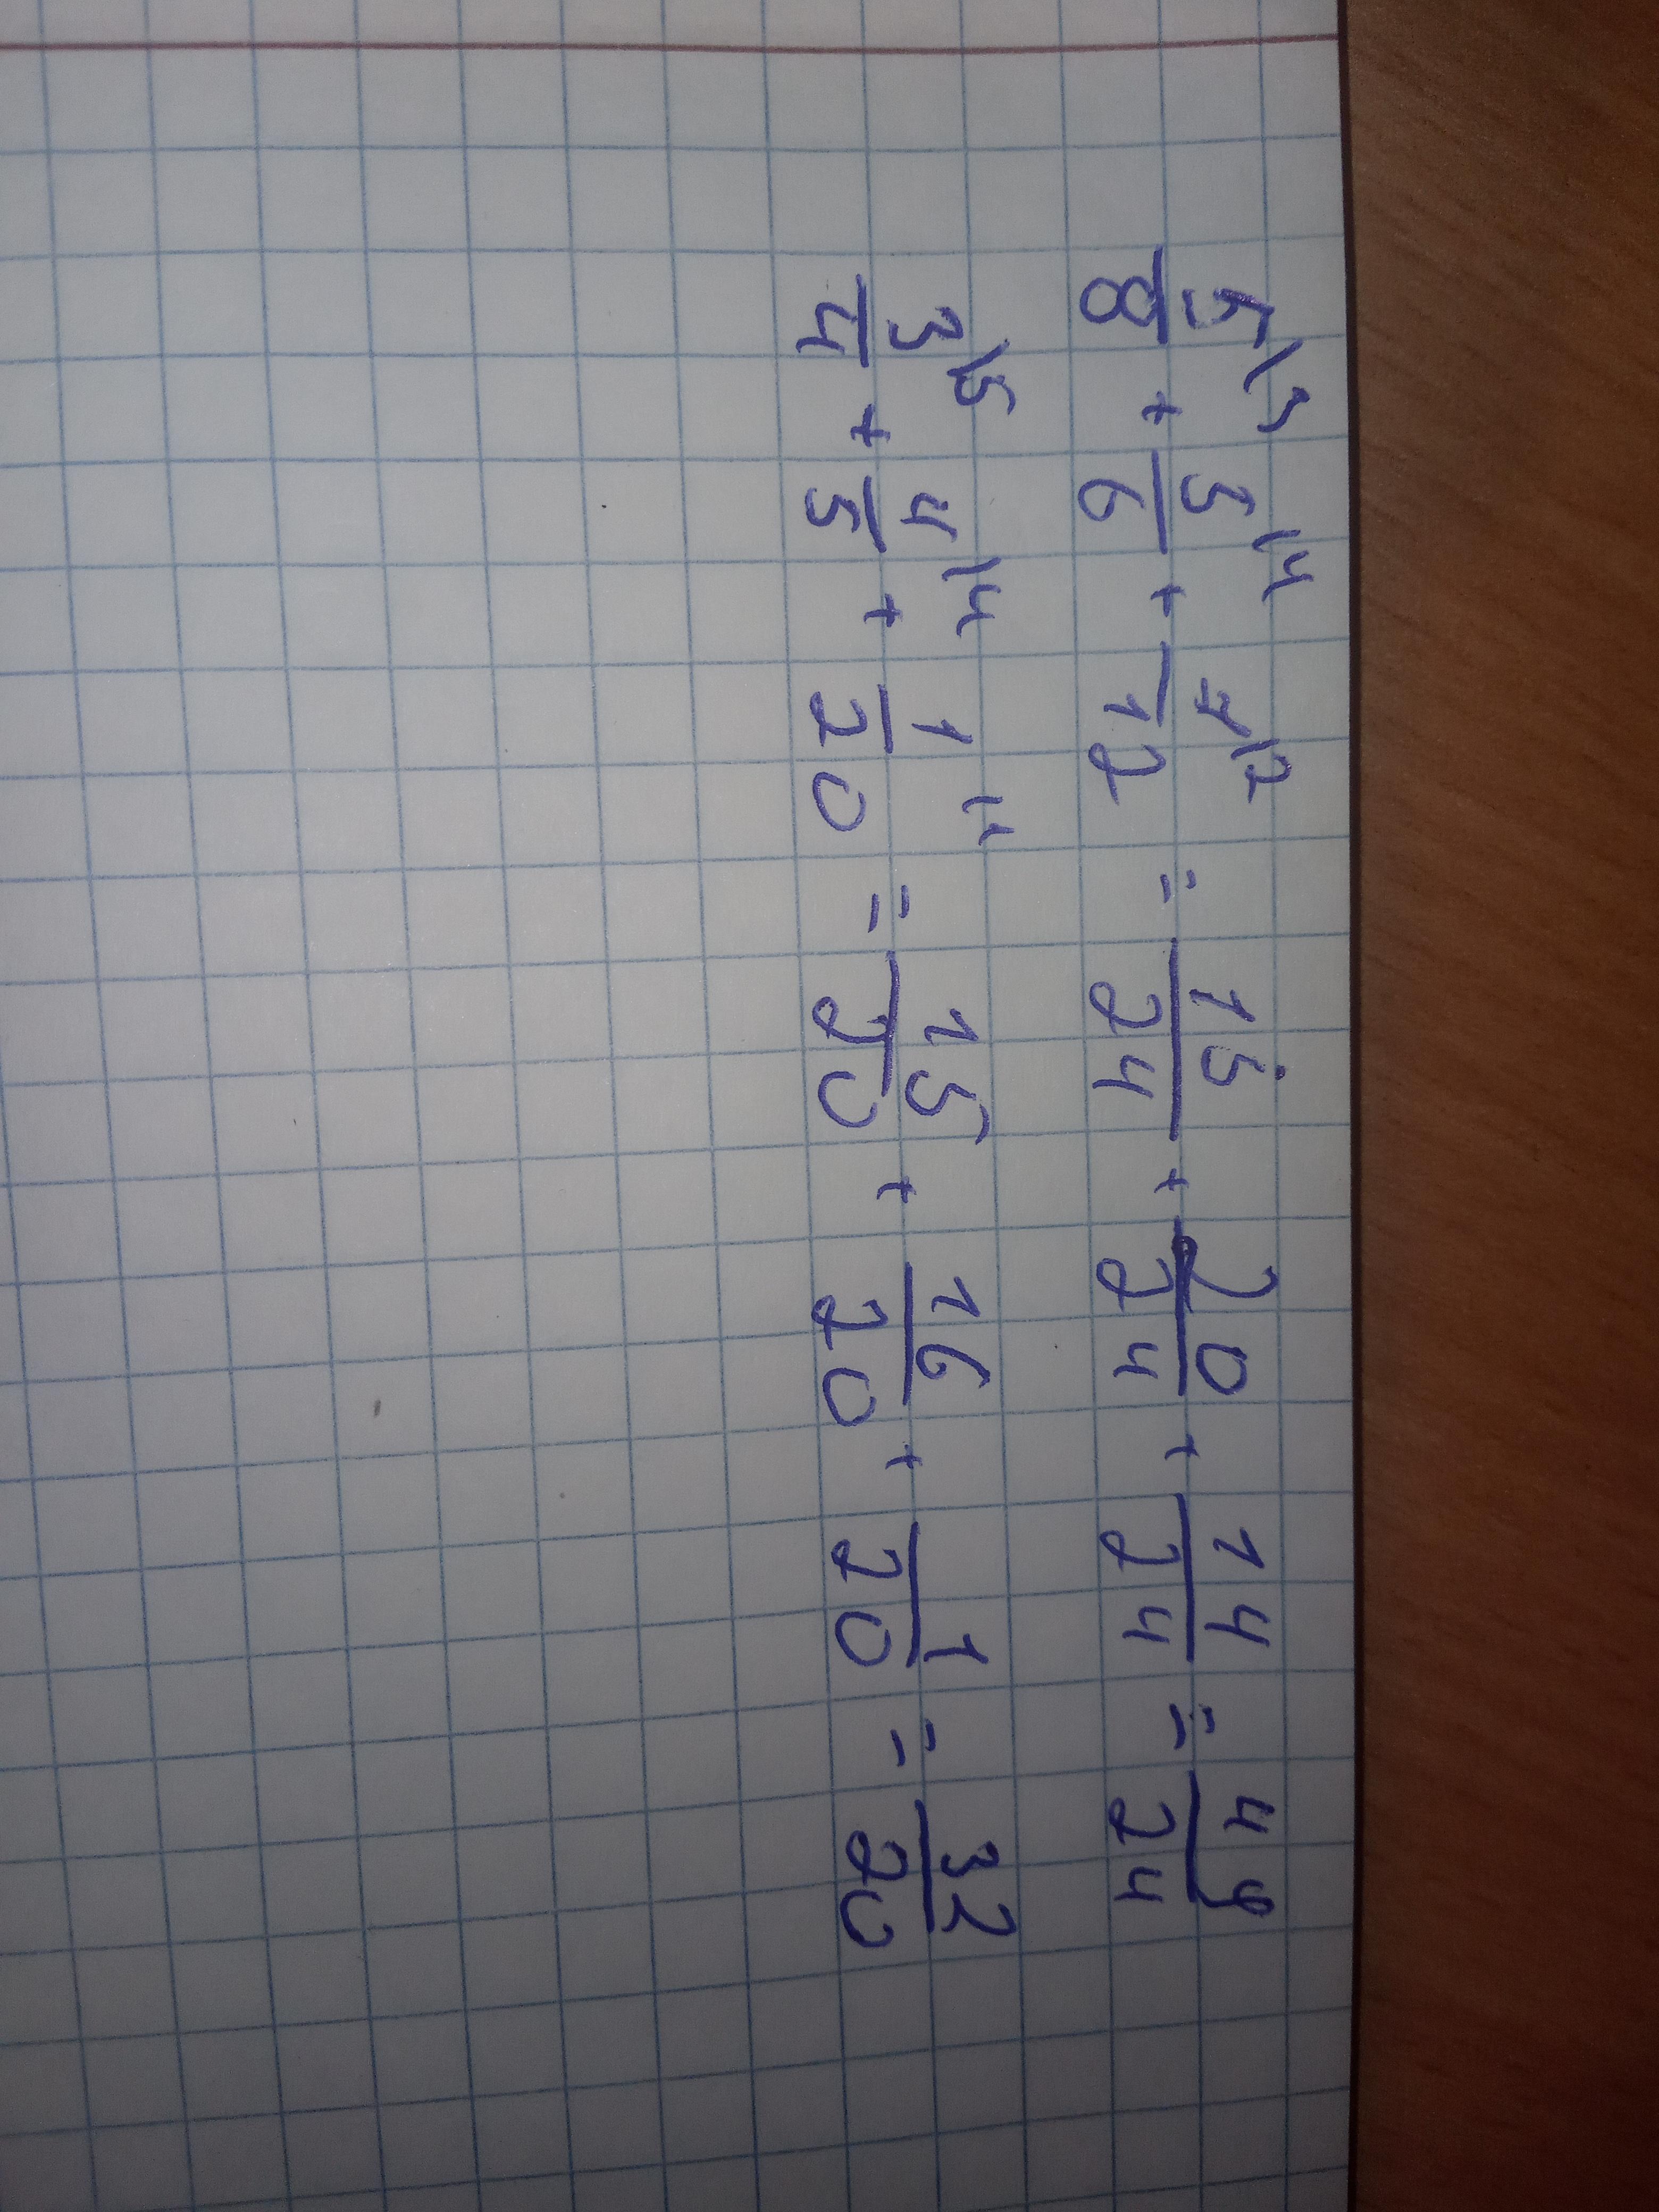 5\3/8 + 5\4/6 + 7\2/12 = 15/24 + 20/24 + 14/24 = 49/24
3\5/4 + 4\4/5 + 1\1/20 = 15/20 + 16/20 + 1/20 = 32/20